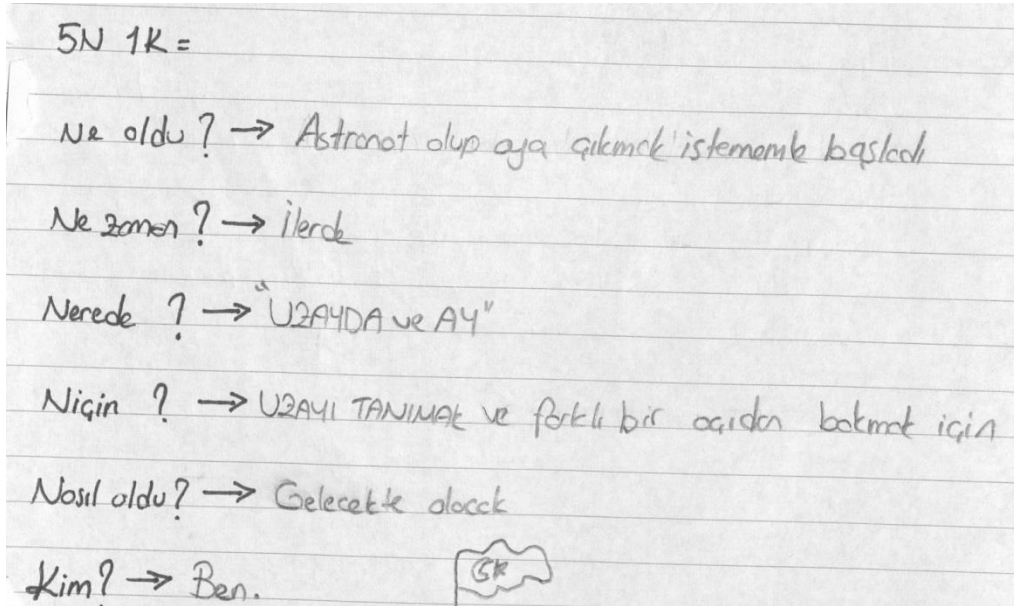 5N 1K =
Ne oldu? → Astronot olup aya çıkmak istememle başladı
Ne zaman? → İlerde
Nerede ? → "UZAYDA ve AY"
Niçin ? → UZAYI TANIMAK ve farklı bir açıdan bakmak için
Nasıl oldu? → Gelecekte olacak
Kim? → Ben.